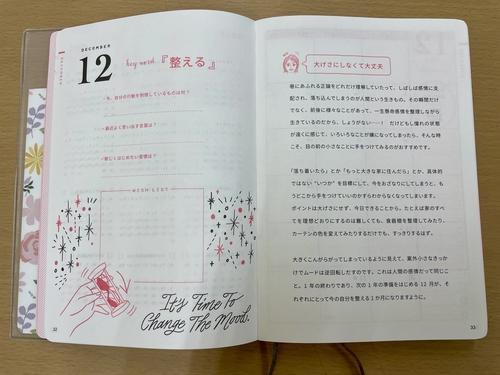 DECEMBER
12
key word 『整える』
・今、自分の行動を制限しているものは何?
・最近よく思い出す言葉は?
・新しくはじめたい習慣は?
WISH LIST
It's Time To
Change The Mood.
32
大げさにしなくて大丈夫
巷にあふれる正論をどれだけ理解していたって、しばしば感情に支
配され、落ち込んでしまうのが人間という生きもの。その瞬間だけ
でなく、前後に様々なことがあって、一生懸命感情を整理しながら
生きているのだから、しょうがない……! だけどもし憧れの状態
が遠くに感じて、いろいろなことが嫌になってしまったら、そんな時
こそ、目の前の小さなことに手をつけてみるのがおすすめです。
「落ち着いたら」とか「もっと大きな家に住んだら」とか、具体的
ではない“いつか”を目標にして、今をおざなりにしてしまうと、も
うどこから手をつけていいのかすらわからなくなってしまいます。
ポイントは大げさにせず、今日できることから。たとえば家のすべ
てを理想どおりにするのは難しくても、食器棚を整理してみたり、
カーテンの色を変えてみたりするだけでも、すっきりするはず。
大きくこんがらがってしまっているように見えて、案外小さなきっか
けでムードは逆回転しだすのです。これは人間の感情だって同じこ
と。1年の終わりであり、次の1年の準備をはじめる12月が、そ
れぞれにとって今の自分を整える1か月になりますように。
33